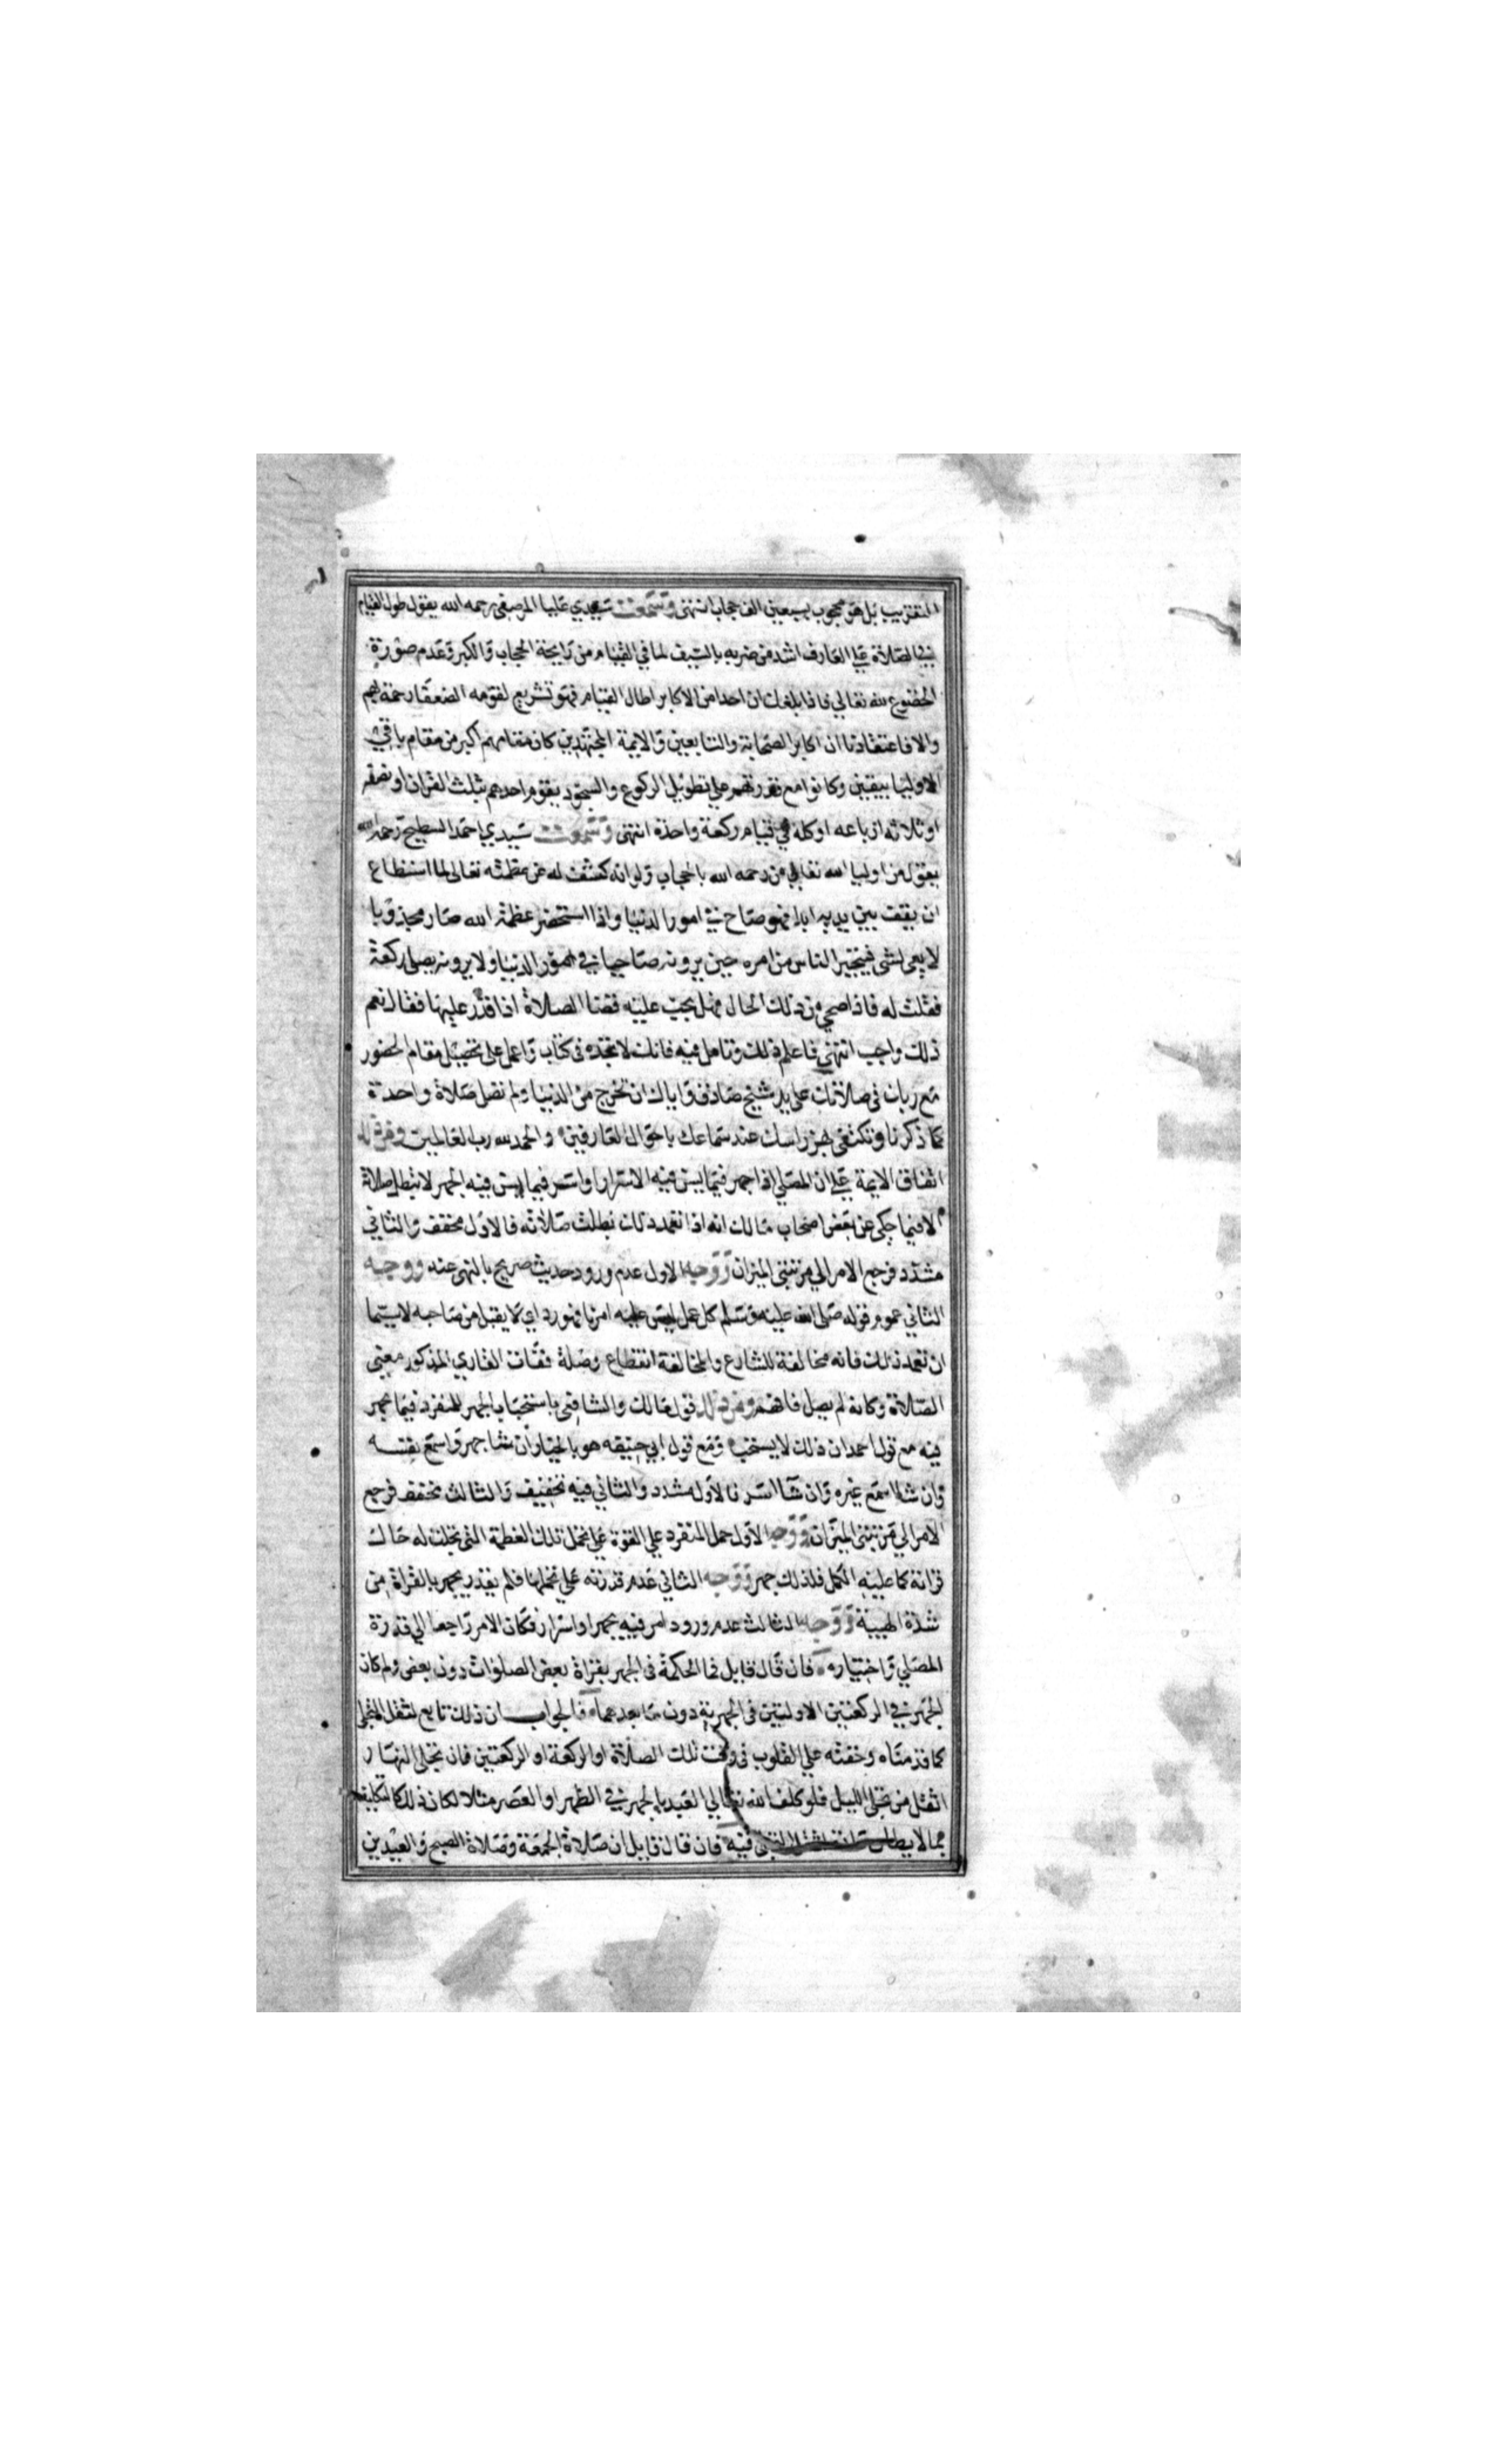 التقريب بل هو محجوب بسبعين الف حجاب انتهى وسمعت سيدي عليا المرصفي رحمه الله يقول طول القيام
في الصلاة علي العارف اشد من ضربه بالسيف لما في القيام من رايحة الحجاب والكبر وعدم صورة
الخضوع لله تعالي فاذا بلغك ان احدا من الاكابر اطال القيام فهو تشريع لقومه الضعفا رحمة بهم
والا فاعتقادنا ان اكابر الصحابة والتابعين والايمة المجتهدين كان مقامهم اكبر من مقام باقي
الاوليا بيقين وكانوا مع قدرتهم علي تطويل الركوع والسجود يقوم احدهم بثلث القران او نصفه
او ثلاثة ارباعه او كله في قيام ركعة واحدة انتهى وسمعت سيدي احمد السطيح رحمه الله
يقول من اوليا الله تعالي من رحمه الله بالحجاب ولو انه كشف له عن عظمته تعالى لما استطاع
ان يقف بين يديه ابدا فهو صاح في امور الدنيا واذا استحضر عظمة الله صار مجذوبا
لا يعي لشى فيتحير الناس من امره حين يرونه صاحيا في امور الدنيا ولا يرونه يصلي ركعة
فقلت له فاذا صحي من ذلك الحال فهل يجب عليه قضا الصلاة اذا قدر عليها فقال نعم
ذلك واجب انتهى فاعلم ذلك وتامل فيه فانك لا تجده في كتاب واعمل على تحصيل مقام الحضور
مع ربك في صلاتك على يد شيخ صادق واياك ان تخرج من الدنيا ولم تصل صلاة واحدة
كما ذكرنا وتكتفي بهز راسك عند سماعك باحوال العارفين والحمد لله رب العالمين ومن ذلك
اتفاق الايمة علي ان المصلي اذا جهر فيما يسن فيه الاسرار او اسر فيما يسن فيه الجهر لا تبطل صلاته
الا فيما حكي عن بعض اصحاب مالك انه اذا تعمد ذلك بطلت صلاته فالاول مخفف والثاني
مشدد فرجع الامر الي مرتبتي الميزان ووجه الاول عدم ورود حديث صريح بالنهي عنه ووجه
الثاني عموم قوله صلى الله عليه وسلم كل عمل ليس عليه امرنا فهو رد اي لا يقبل من صاحبه لا سيما
ان تعمد ذلك فانه مخالفة للشارع والمخالفة انقطاع وصلة ففات القاري المذكور معنى
الصلاة وكانه لم يصل فافهم ومن ذلك قول مالك والشافعي باستحباب الجهر للمنفرد فيما يجهر
فيه مع قول احمد ان ذلك لا يستحب ومع قول ابي حنيفه هو بالخيار ان شا جهر واسمع نفسه
وان شا اسمع غيره وان شا اسر فالاول مشدد والثاني فيه تخفيف والثالث مخفف فرجع
الامر الي مرتبتي الميزان ووجه الاول حمل المنفرد علي القوة علي تحمل تلك العظمة التي تجلت له حال
قرانه كما عليه الكمل فلذلك جهر ووجه الثاني عدم قدرته علي تحملها فلم يقدر يجهر بالقراة من
شدة الهيبة ووجه الثالث عدم ورود امر فيه بجهر او اسرار فكان الامر راجعا الي قدرة
المصلي واختياره فان قال قايل فما الحكمة في الجهر بقراة بعض الصلوات دون بعض ولم كان
الجهر في الركعتين الاوليتين في الجهرية دون ما بعدهما فالجواب ان ذلك تابع لثقل التجلي
كما قدمناه وخفته علي القلوب في وقت تلك الصلاة او الركعة او الركعتين فان تجلي النهار
اثقل من تجلي الليل فلو كلف الله تعالي العبد بالجهر في الظهر او العصر مثلا لكان ذلك كالتكليف
بما لا يطاق فيه فان قال قايل ان صلاة الجمعة وصلاة الصبح والعيدين